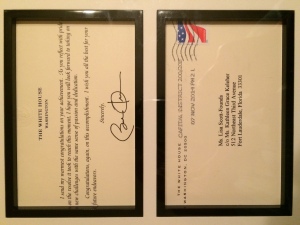 THE WHITE HOUSE
WASHINGTON
I send my warmest congratulations on your achievement. As you reflect with pride
on the resolve it took to reach this moment, I hope you will look forward to taking on
new challenges with the same sense of passion and dedication.
Congratulations, again, on this accomplishment. I wish you all the best for your
future endeavors.
Sincerely,
THE WHITE HOUSE
WASHINGTON, DC 20500
CAPITAL DISTRICT 208
07 NOV 2014 PM 2 L
Ms. Lisa
c/o Ms. Kathleen Grace Kelleher
512 Northeast Third Avenue
Fort Lauderdale, Florida 33301